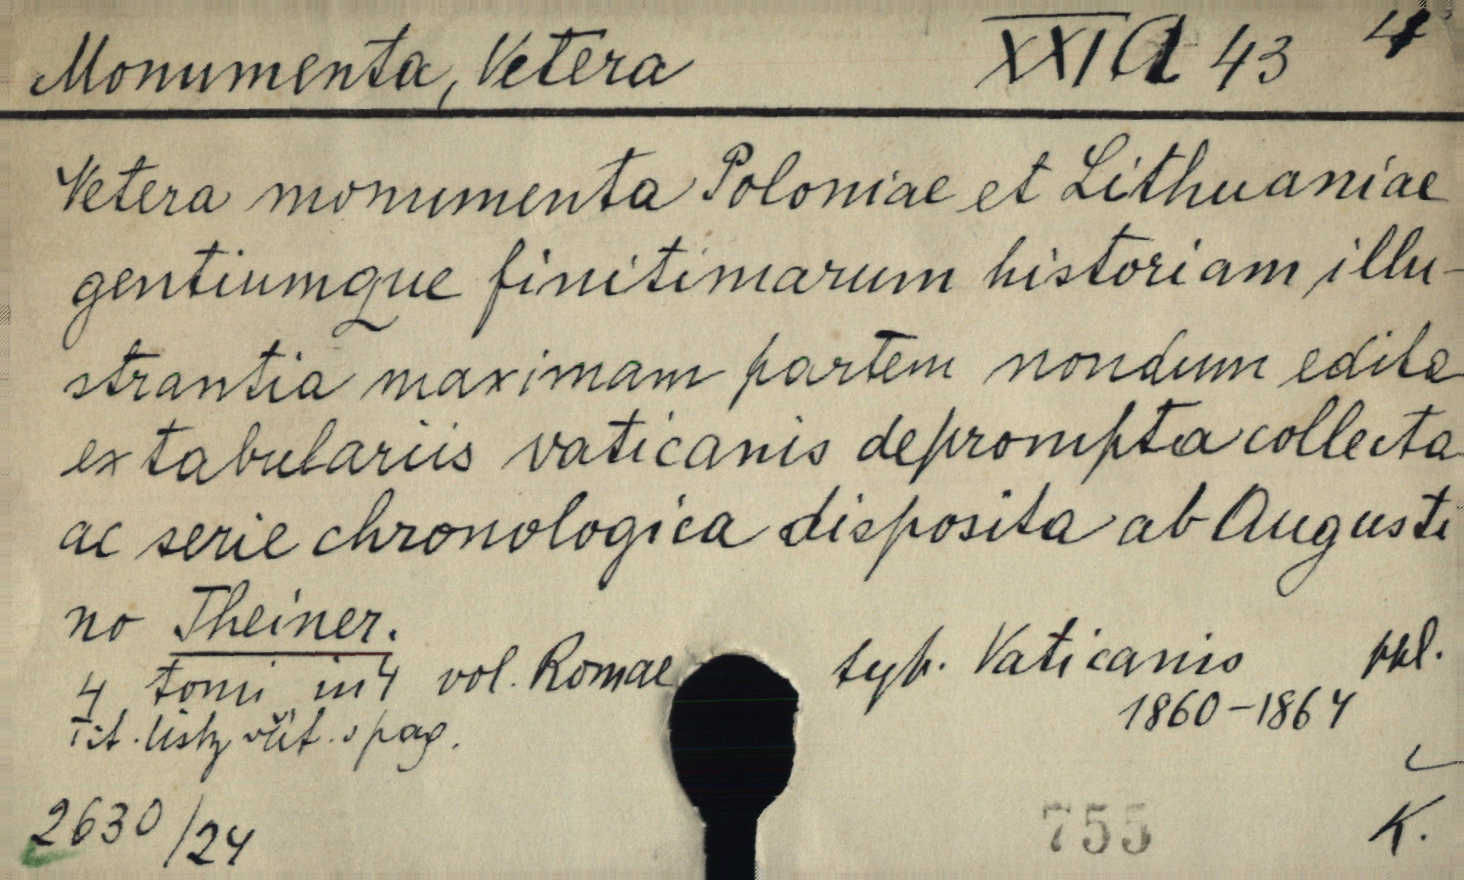 Monumenta, Vetera XXI A 43 4
Vetera monumenta Poloniae et Lithuaniae
gentiumque finitimarum historiam illu-
strantia maximam partem nondum edita
ex tabulariis vaticanis deprompta collecta
ac serie chronologica disposita ab Augusti
no Theiner.
4 tomi in 4 vol. Romae typ. Vaticanis ppl.
1860-1864
Tit. listy všit. pag.
2630/24 755 K.